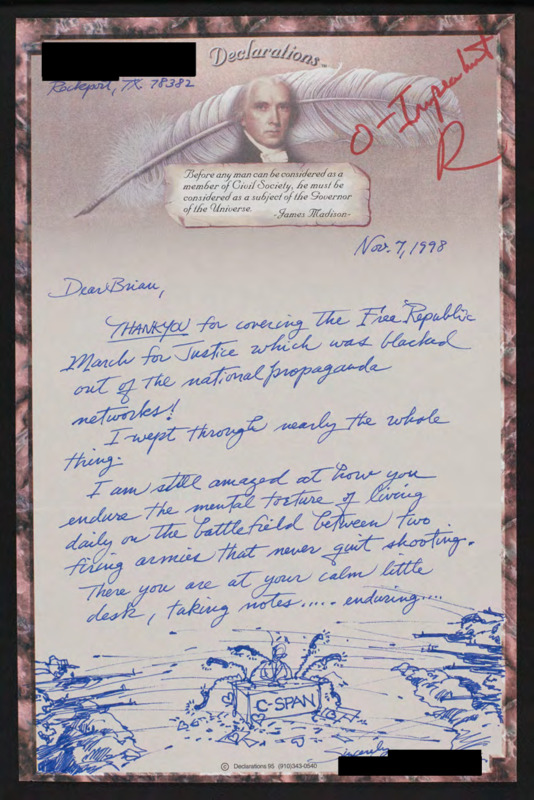 Declarations™
O-Impeachment
R
Rockport, TX 78382
Before any man can be considered as a
member of Civil Society, he must be
considered as a subject of the Governor
of the Universe.
-James Madison-
Nov. 7, 1998
Dear Brian,
THANK YOU for covering the Free Republic
March for Justice which was blacked
out of the national propaganda
networks!
I wept through nearly the whole
thing.
I am still amazed at how you
endure the mental torture of living
daily on the battlefield between two
firing armies that never quit shooting.
There you are at your calm little
desk, taking notes..... enduring....
C-SPAN
Sincerely
© Declarations 95 (910)343-0540